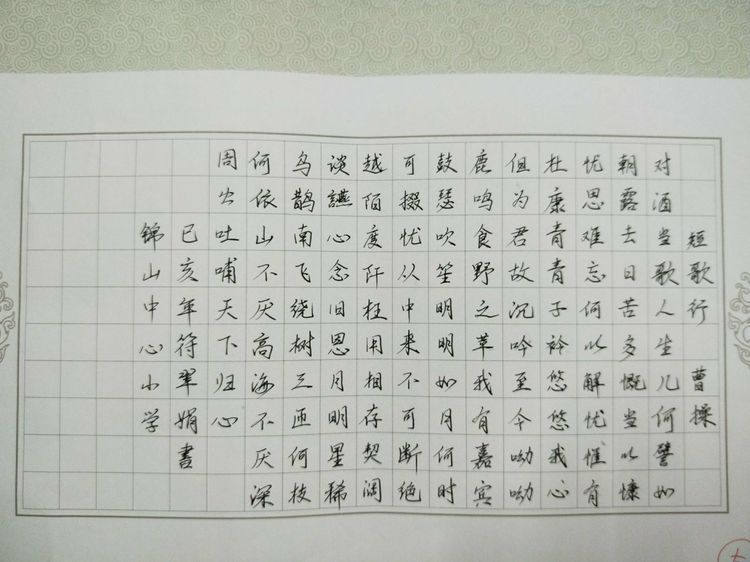 短歌行 曹操
对酒当歌人生几何譬如
朝露去日苦多慨当以慷
忧思难忘何以解忧惟有
杜康青青子衿悠悠我心
但为君故沉吟至今呦呦
鹿鸣食野之草我有嘉宾
鼓瑟吹笙明明如月何时
可掇忧从中来不可断绝
越陌度阡枉用相存契阔
谈讌心念旧恩月明星稀
乌鹊南飞绕树三匝何枝
何依山不厌高海不厌深
周公吐哺天下归心
己亥年符翠娟書
锦山中心小学